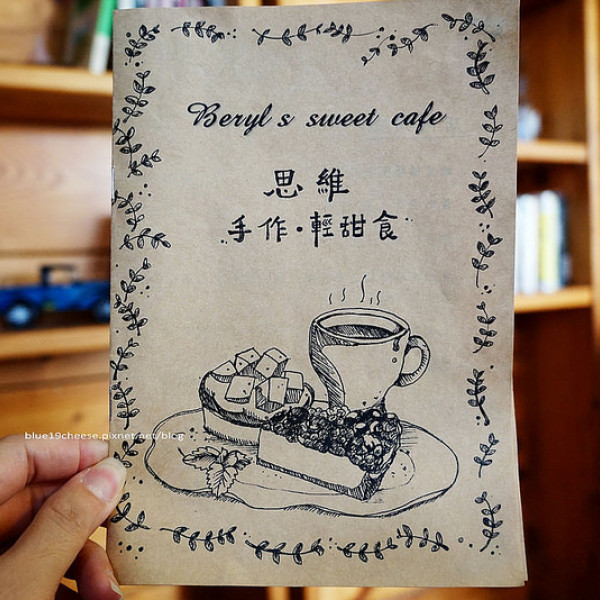 Beryl's sweet cafe
思維
手作·輕甜食
blue19cheese.pixnet.net/blog